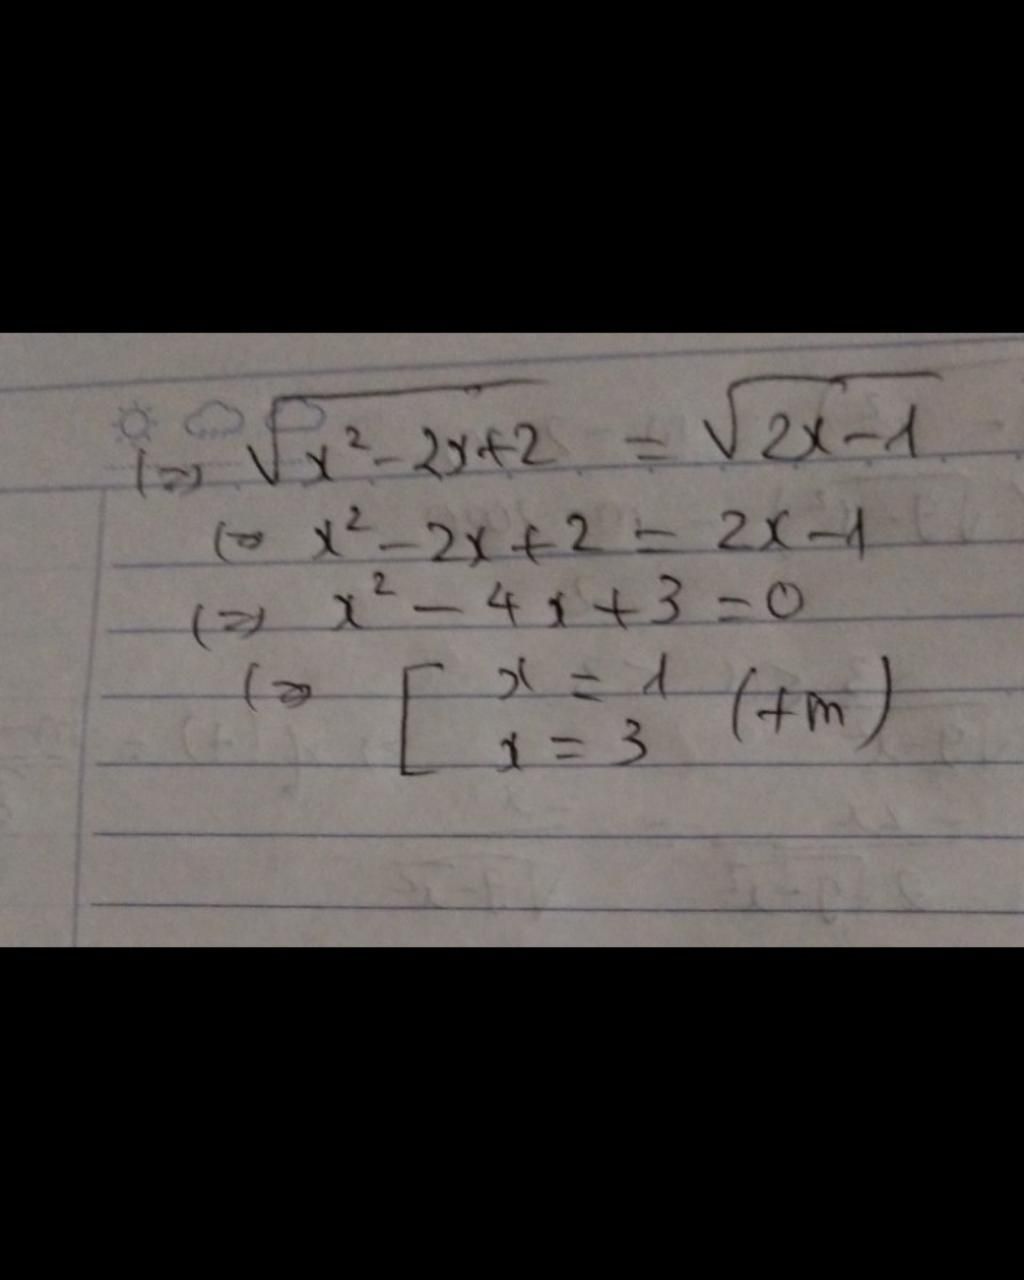 (=) √(x² - 2x + 2) = √(2x - 1)
(=) x² - 2x + 2 = 2x - 1
(=) x² - 4x + 3 = 0
(=) [ x = 1
x = 3 (+m)